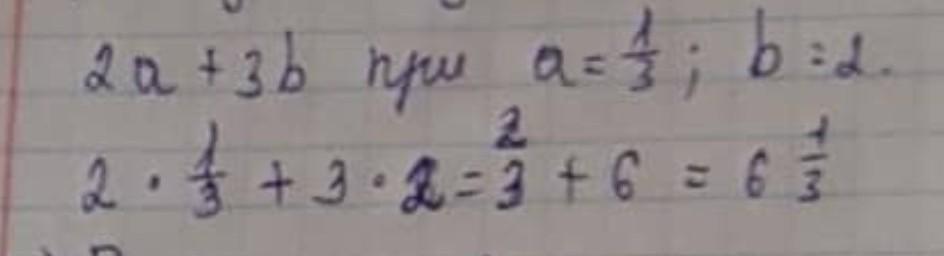 2a + 3b при a = 1/3; b = 2.
2 · 1/3 + 3 · 2 = 2/3 + 6 = 6 1/3